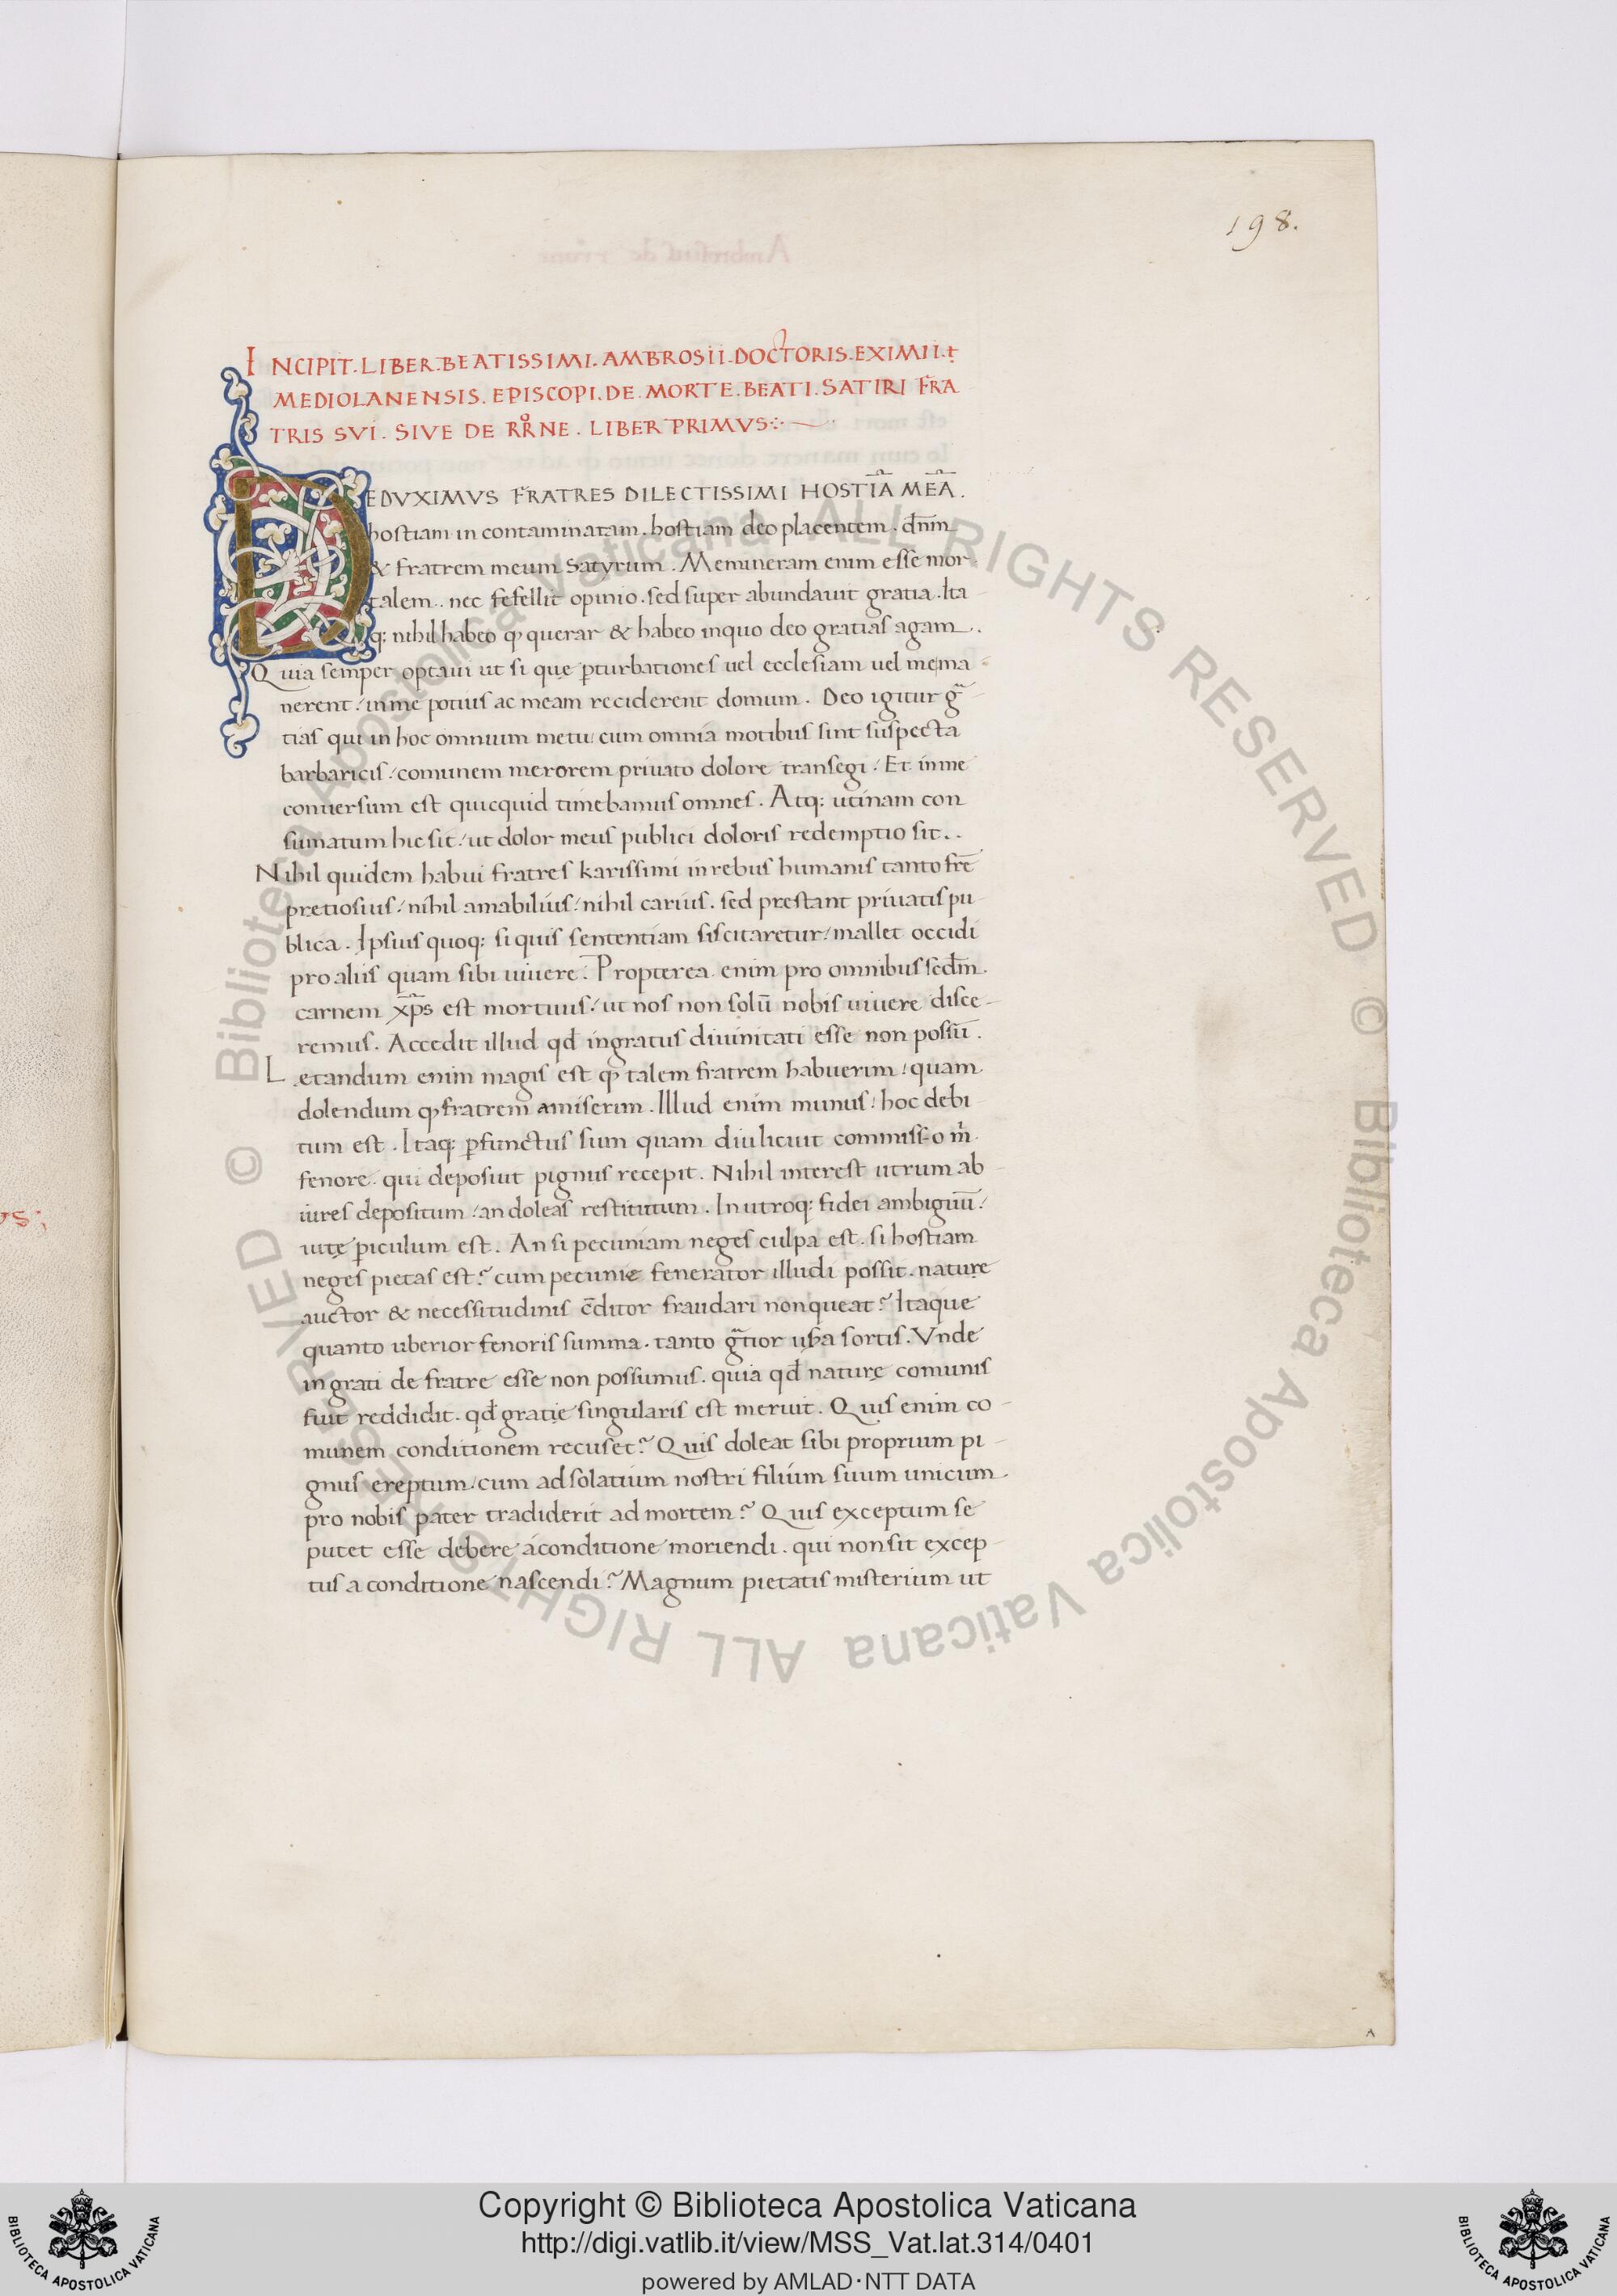 198.
INCIPIT. LIBER. BEATISSIMI. AMBROSII. DOCTORIS. EXIMII. &
MEDIOLANENSIS. EPISCOPI. DE. MORTE. BEATI. SATIRI FRA
TRIS SVI. SIVE DE RR̊NE. LIBER PRIMVS:~
DEDVXIMVS FRATRES DILECTISSIMI HOSTIĀ MEĀ.
hostiam in contaminatam. hostiam deo placentem. dn̄m
& fratrem meum Satyrum. Memineram enim esse mor-
talem.. nec fefellit opinio. sed super abundauit gratia. Ita
q: nihil habeo ꝙ querar & habeo inquo deo gratias agam.
Quia semper optaui ut si quę ꝑturbationes uel ecclesiam uel me ma-
nerent / inme potius ac meam reciderent domum. Deo igitur gr̄a
tias qui in hoc omnium metu cum omnia motibus sint suspecta
barbaricis / comunem merorem priuato dolore transegi / Et inme
conuersum est quicquid timebamus omnes. Atq: utinam con
sumatum hic sit / ut dolor meus publici doloris redemptio sit..
Nihil quidem habui fratres karissimi in rebus humanis tanto fr̄e
pretiosius / nihil amabilius / nihil carius. sed prestant priuatis pu
blica. Ipsius quoq: si quis sententiam siscitaretur / mallet occidi
pro aliis quam sibi uiuere. Propterea enim pro omnibus scd̄m
carnem xp̄s est mortuus / ut nos non solū nobis uiuere disce-
remus. Accedit illud qd̄ ingratus diuinitati esse non possū.
Lętandum enim magis est ꝙ talem fratrem habuerim / quam
dolendum ꝙ fratrem amiserim. Illud enim munus / hoc debi
tum est. Itaq: ꝑfunctus sum quam diu licuit commisso m̄
fenore. qui deposuit pignus recepit. Nihil interest utrum ab
iures depositum / an doleas restitutum. In utroq: fidei ambiguū /
uitę ꝑiculum est. An si pecuniam neges culpa est. si hostiam
neges pietas est? cum pecunie fenerator illudi possit. naturę
auctor & necessitudinis c̄ditor fraudari non queat? Itaque
quanto uberior fenoris summa. tanto gr̄tior usura sortis. Vnde
ingrati de fratre esse non possumus. quia qd̄ naturę comunis
fuit reddidit. qd̄ gratię singularis est meruit. Quis enim co-
munem conditionem recuset? Quis doleat sibi proprium pi
gnus ereptum / cum ad solatium nostri filium suum unicum
pro nobis pater tradiderit ad mortem? Quis exceptum se
putet esse debere a conditione moriendi. qui non sit excep
tus a conditione nascendi? Magnum pietatis misterium ut
© Biblioteca Apostolica Vaticana ALL RIGHTS RESERVED
© Biblioteca Apostolica Vaticana ALL RIGHTS RESERVED
Copyright © Biblioteca Apostolica Vaticana
http://digi.vatlib.it/view/MSS_Vat.lat.314/0401
powered by AMLAD·NTT DATA
BIBLIOTECA APOSTOLICA VATICANA
BIBLIOTECA APOSTOLICA VATICANA